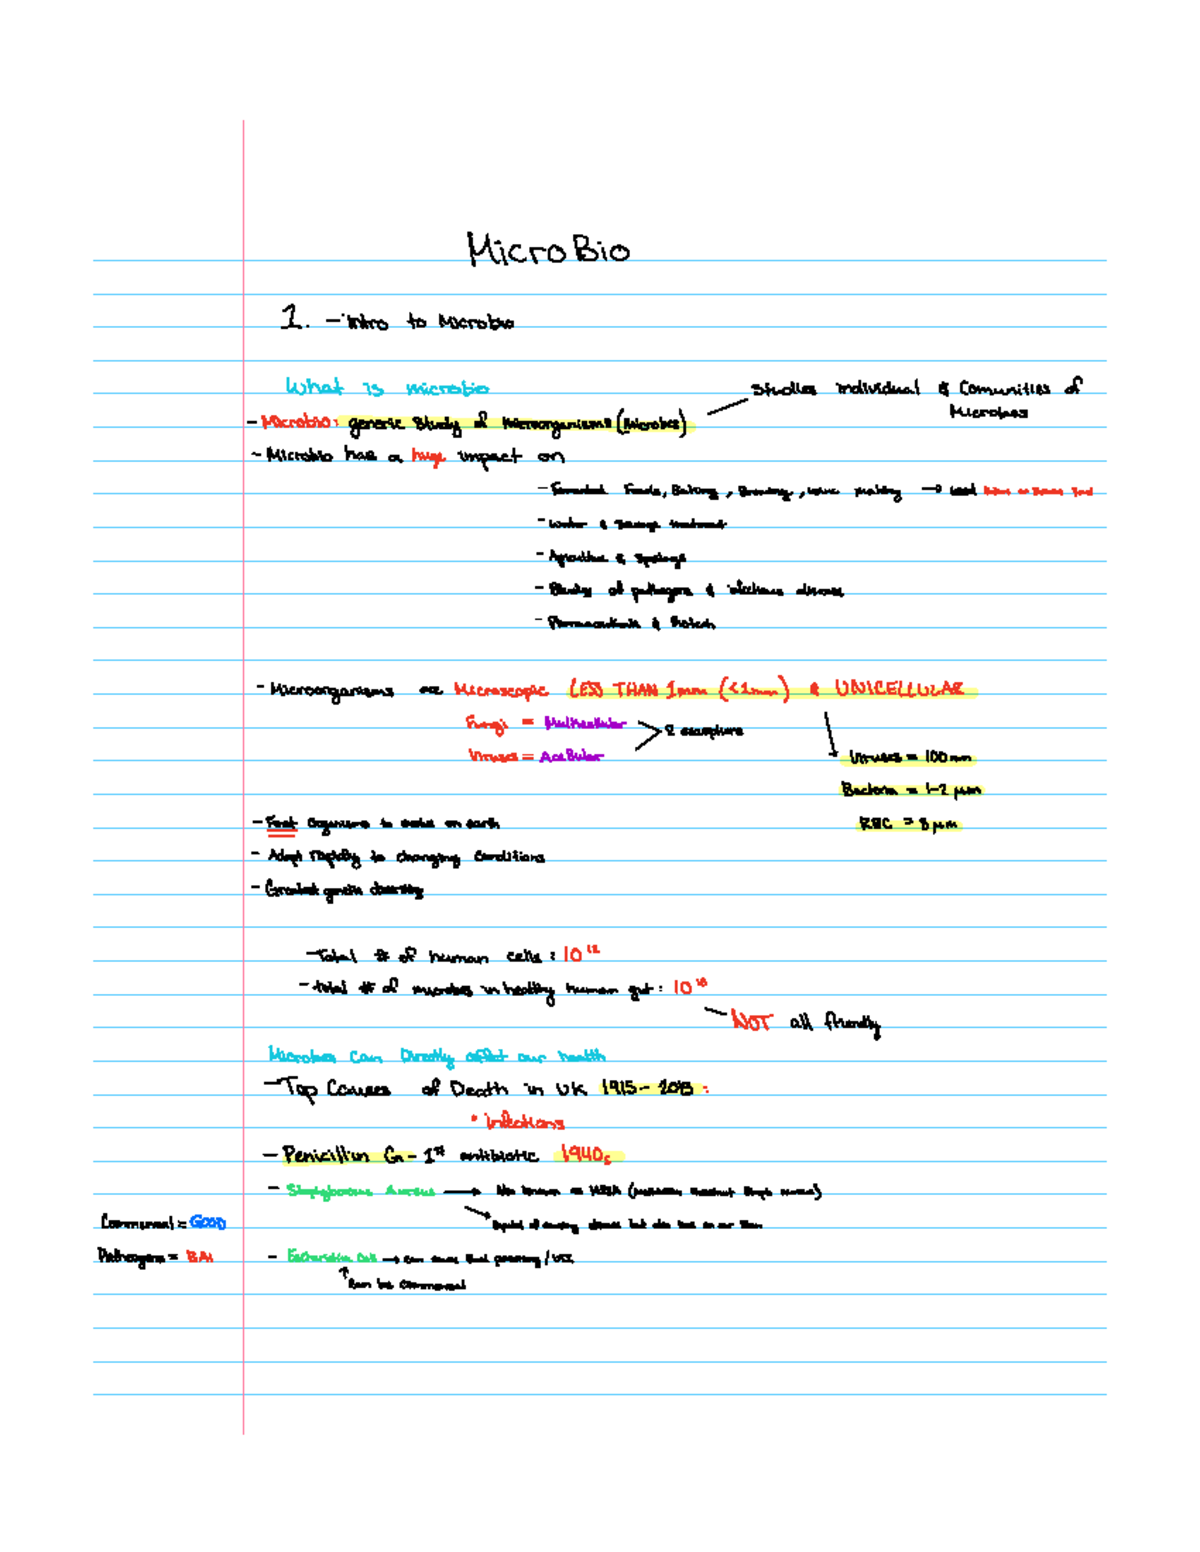 MicroBio
1. - Intro to Microbio
What is microbio
- Microbio: generic Study of Microorganisms (Microbes)
Studies individual & Comunities of
Microbes
- Microbio has a huge impact on
- Foods, Baking, Brewing, wine making →
- Water & Sewage treatment
- & Spoilage
- Study of pathogens & infectious disease
- & Biotech
- Microorganisms are Microscopic LESS THAN 1mm (<1mm) & UNICELLULAR
Fungi = Multicellular
Viruses = Acellular
2 exceptions
Viruses = 100nm
Bacteria = 1-2 μm
RBC = 8 μm
- First Organisms to on earth
- Adapt rapidly to changing Conditions
- Greatest genetic diversity
- Total # of human cells : 10
- total # of microbes in healthy human gut : 10
NOT all friendly
Microbes Can Directly affect our health
- Top Causes of Death in UK 1915 - 2015 :
• infections
- Penicillin G - 1st antibiotic 1940s
- Aureus → known as MRSA
of causing disease but also
Commensal = GOOD
Pathogens = BAD
- Escherichia Coli → can cause food poisoning / UTI
↑ Can be Commensal